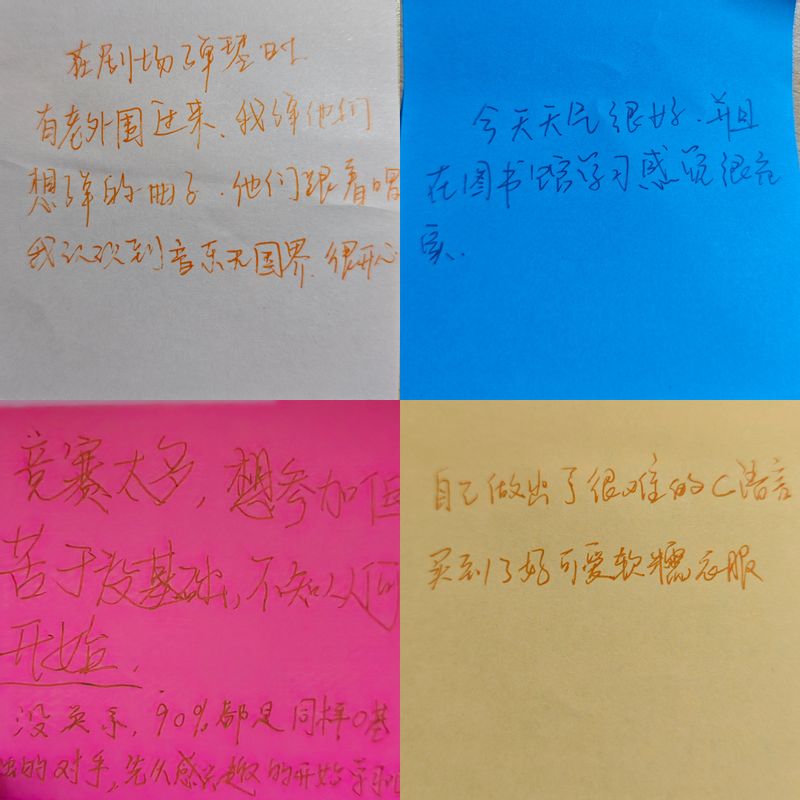 在剧场弹琴时
有老外围过来、我弹他们
想弹的曲子.他们跟着唱
我 到音乐无国界.很开心
今天天气很好.并且
在图书馆学习感觉很充
实.
竞赛太多,想参加但
苦于没基础,不知从何
开始.
没关系,90%都是同样0基
础的对手,先从感兴趣的开始
自己做出了很难的C语言
买到了好可爱软糯衣服